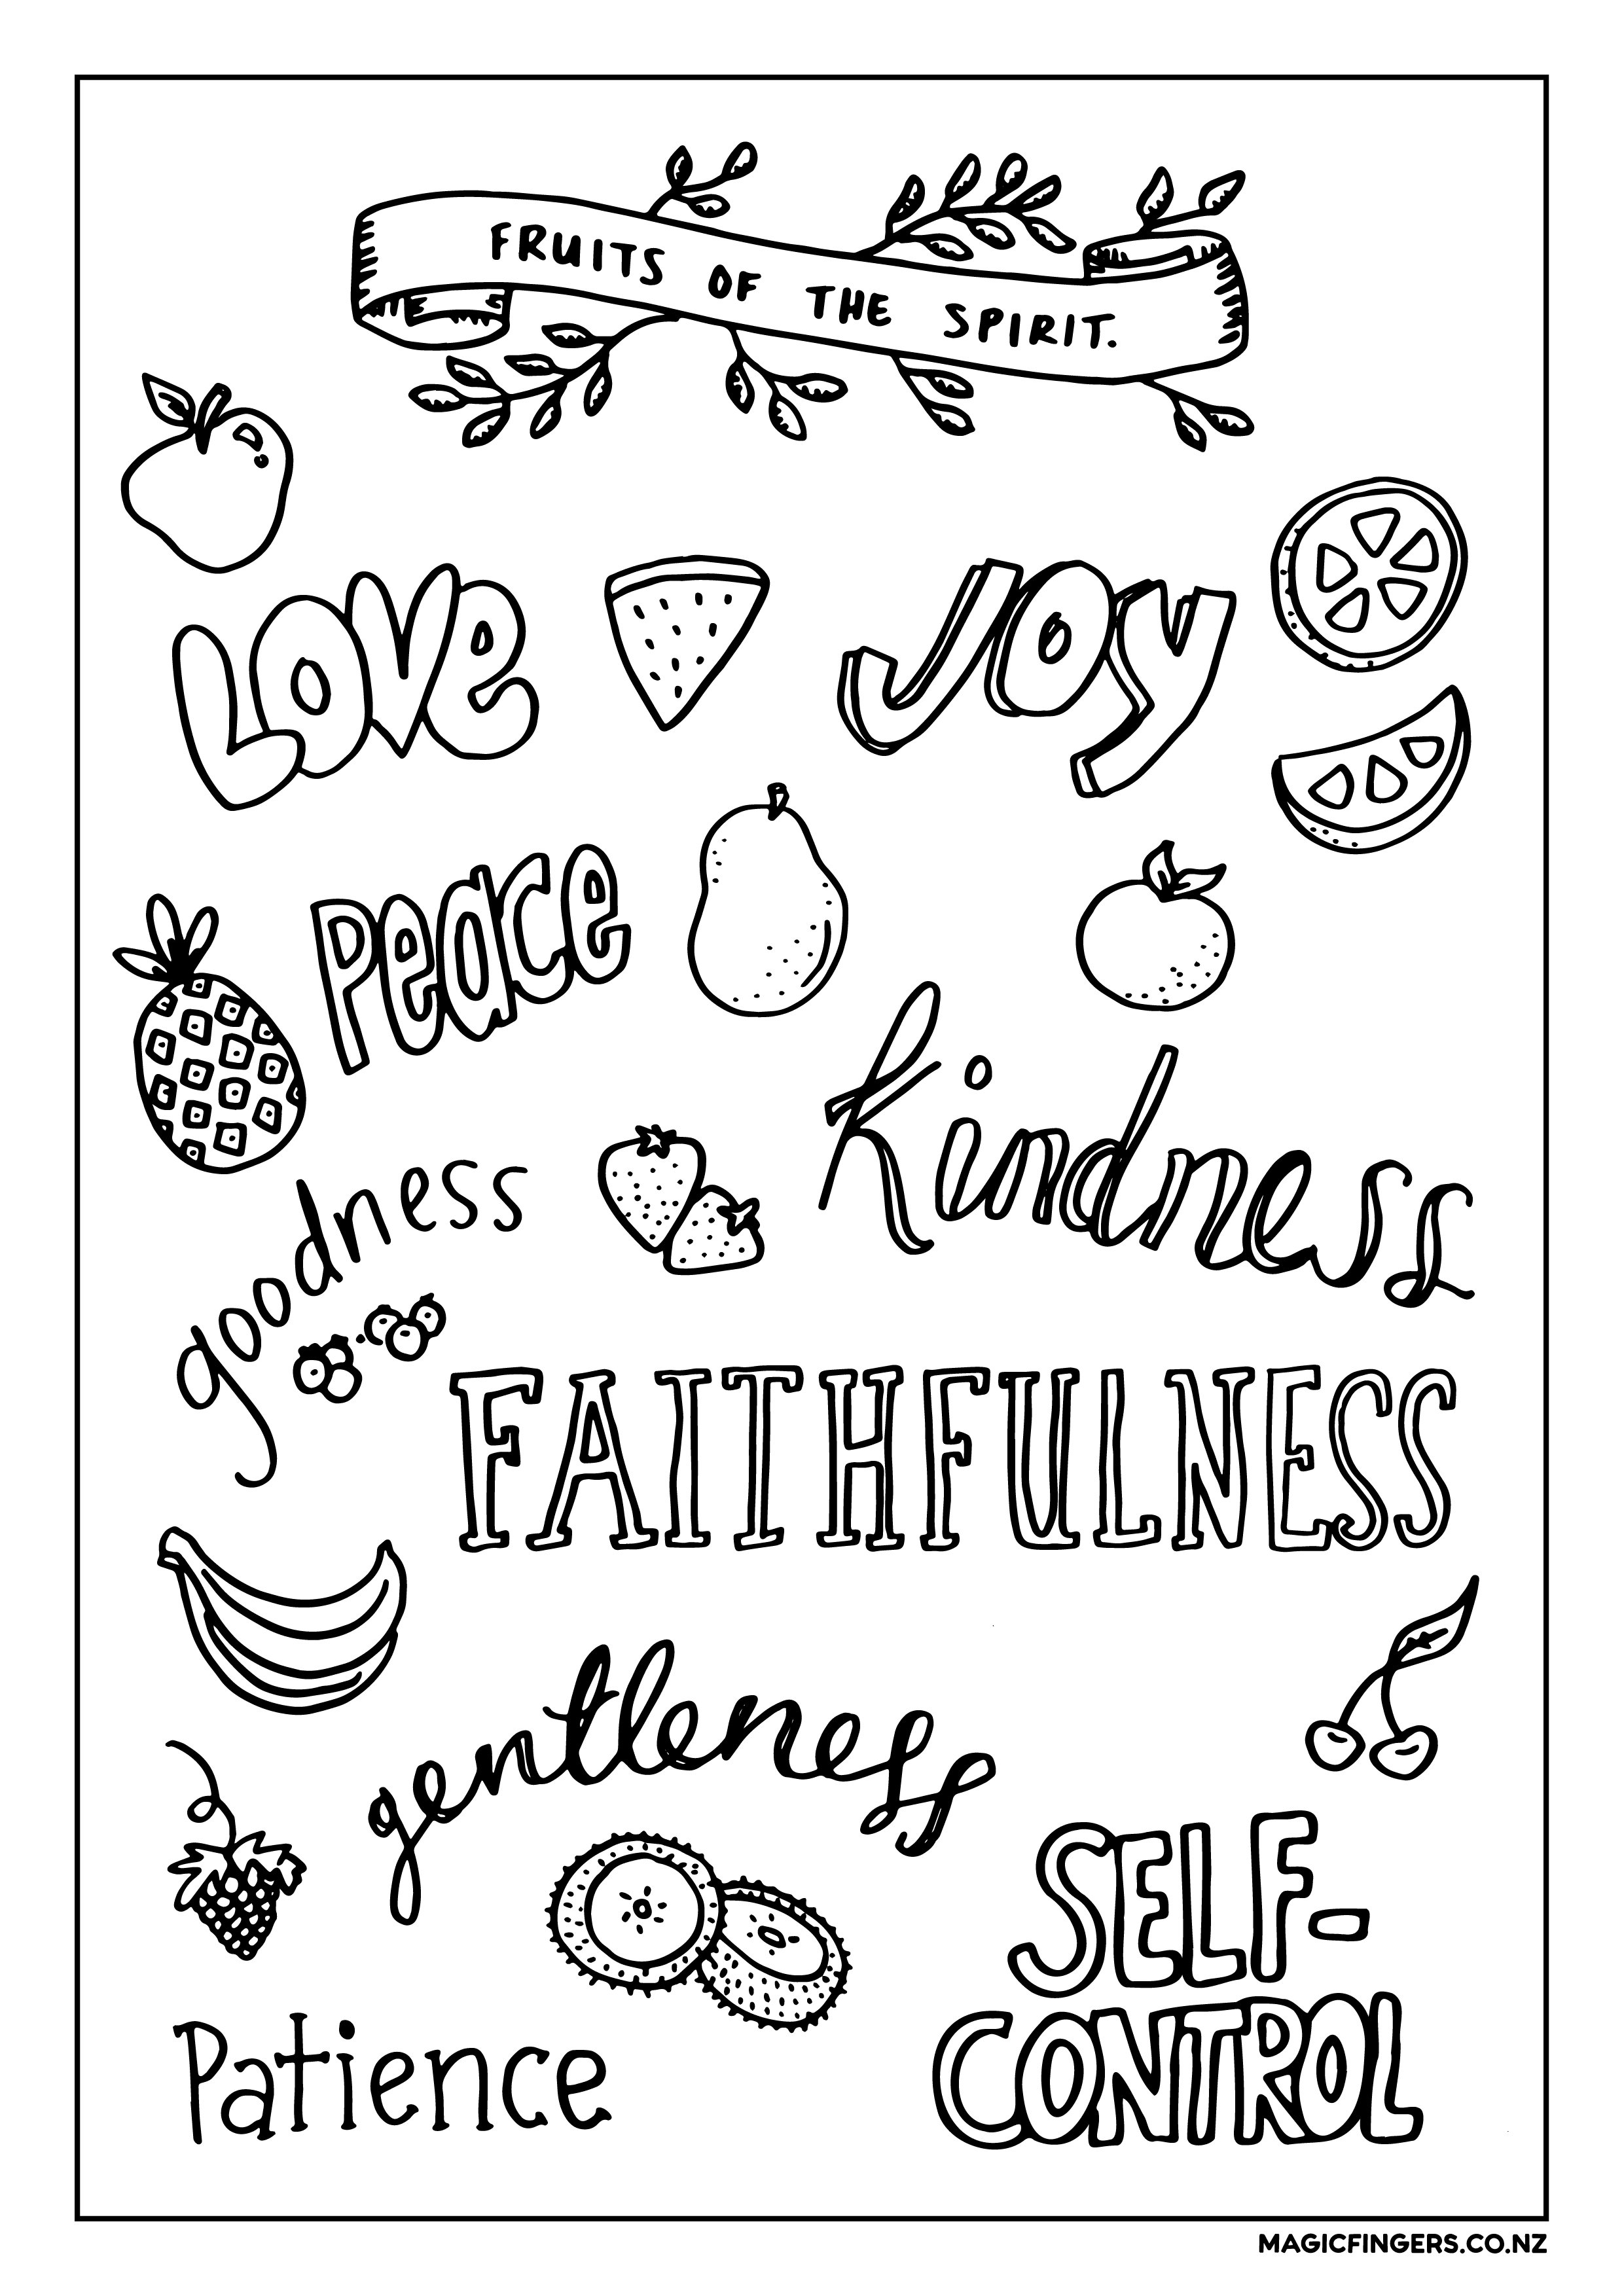 FRUITS OF THE SPIRIT.
LOVE
JOY
Peace
Kindness
goodness
FAITHFULNESS
gentleness
SELF-
CONTROL
Patience
MAGICFINGERS.CO.NZ